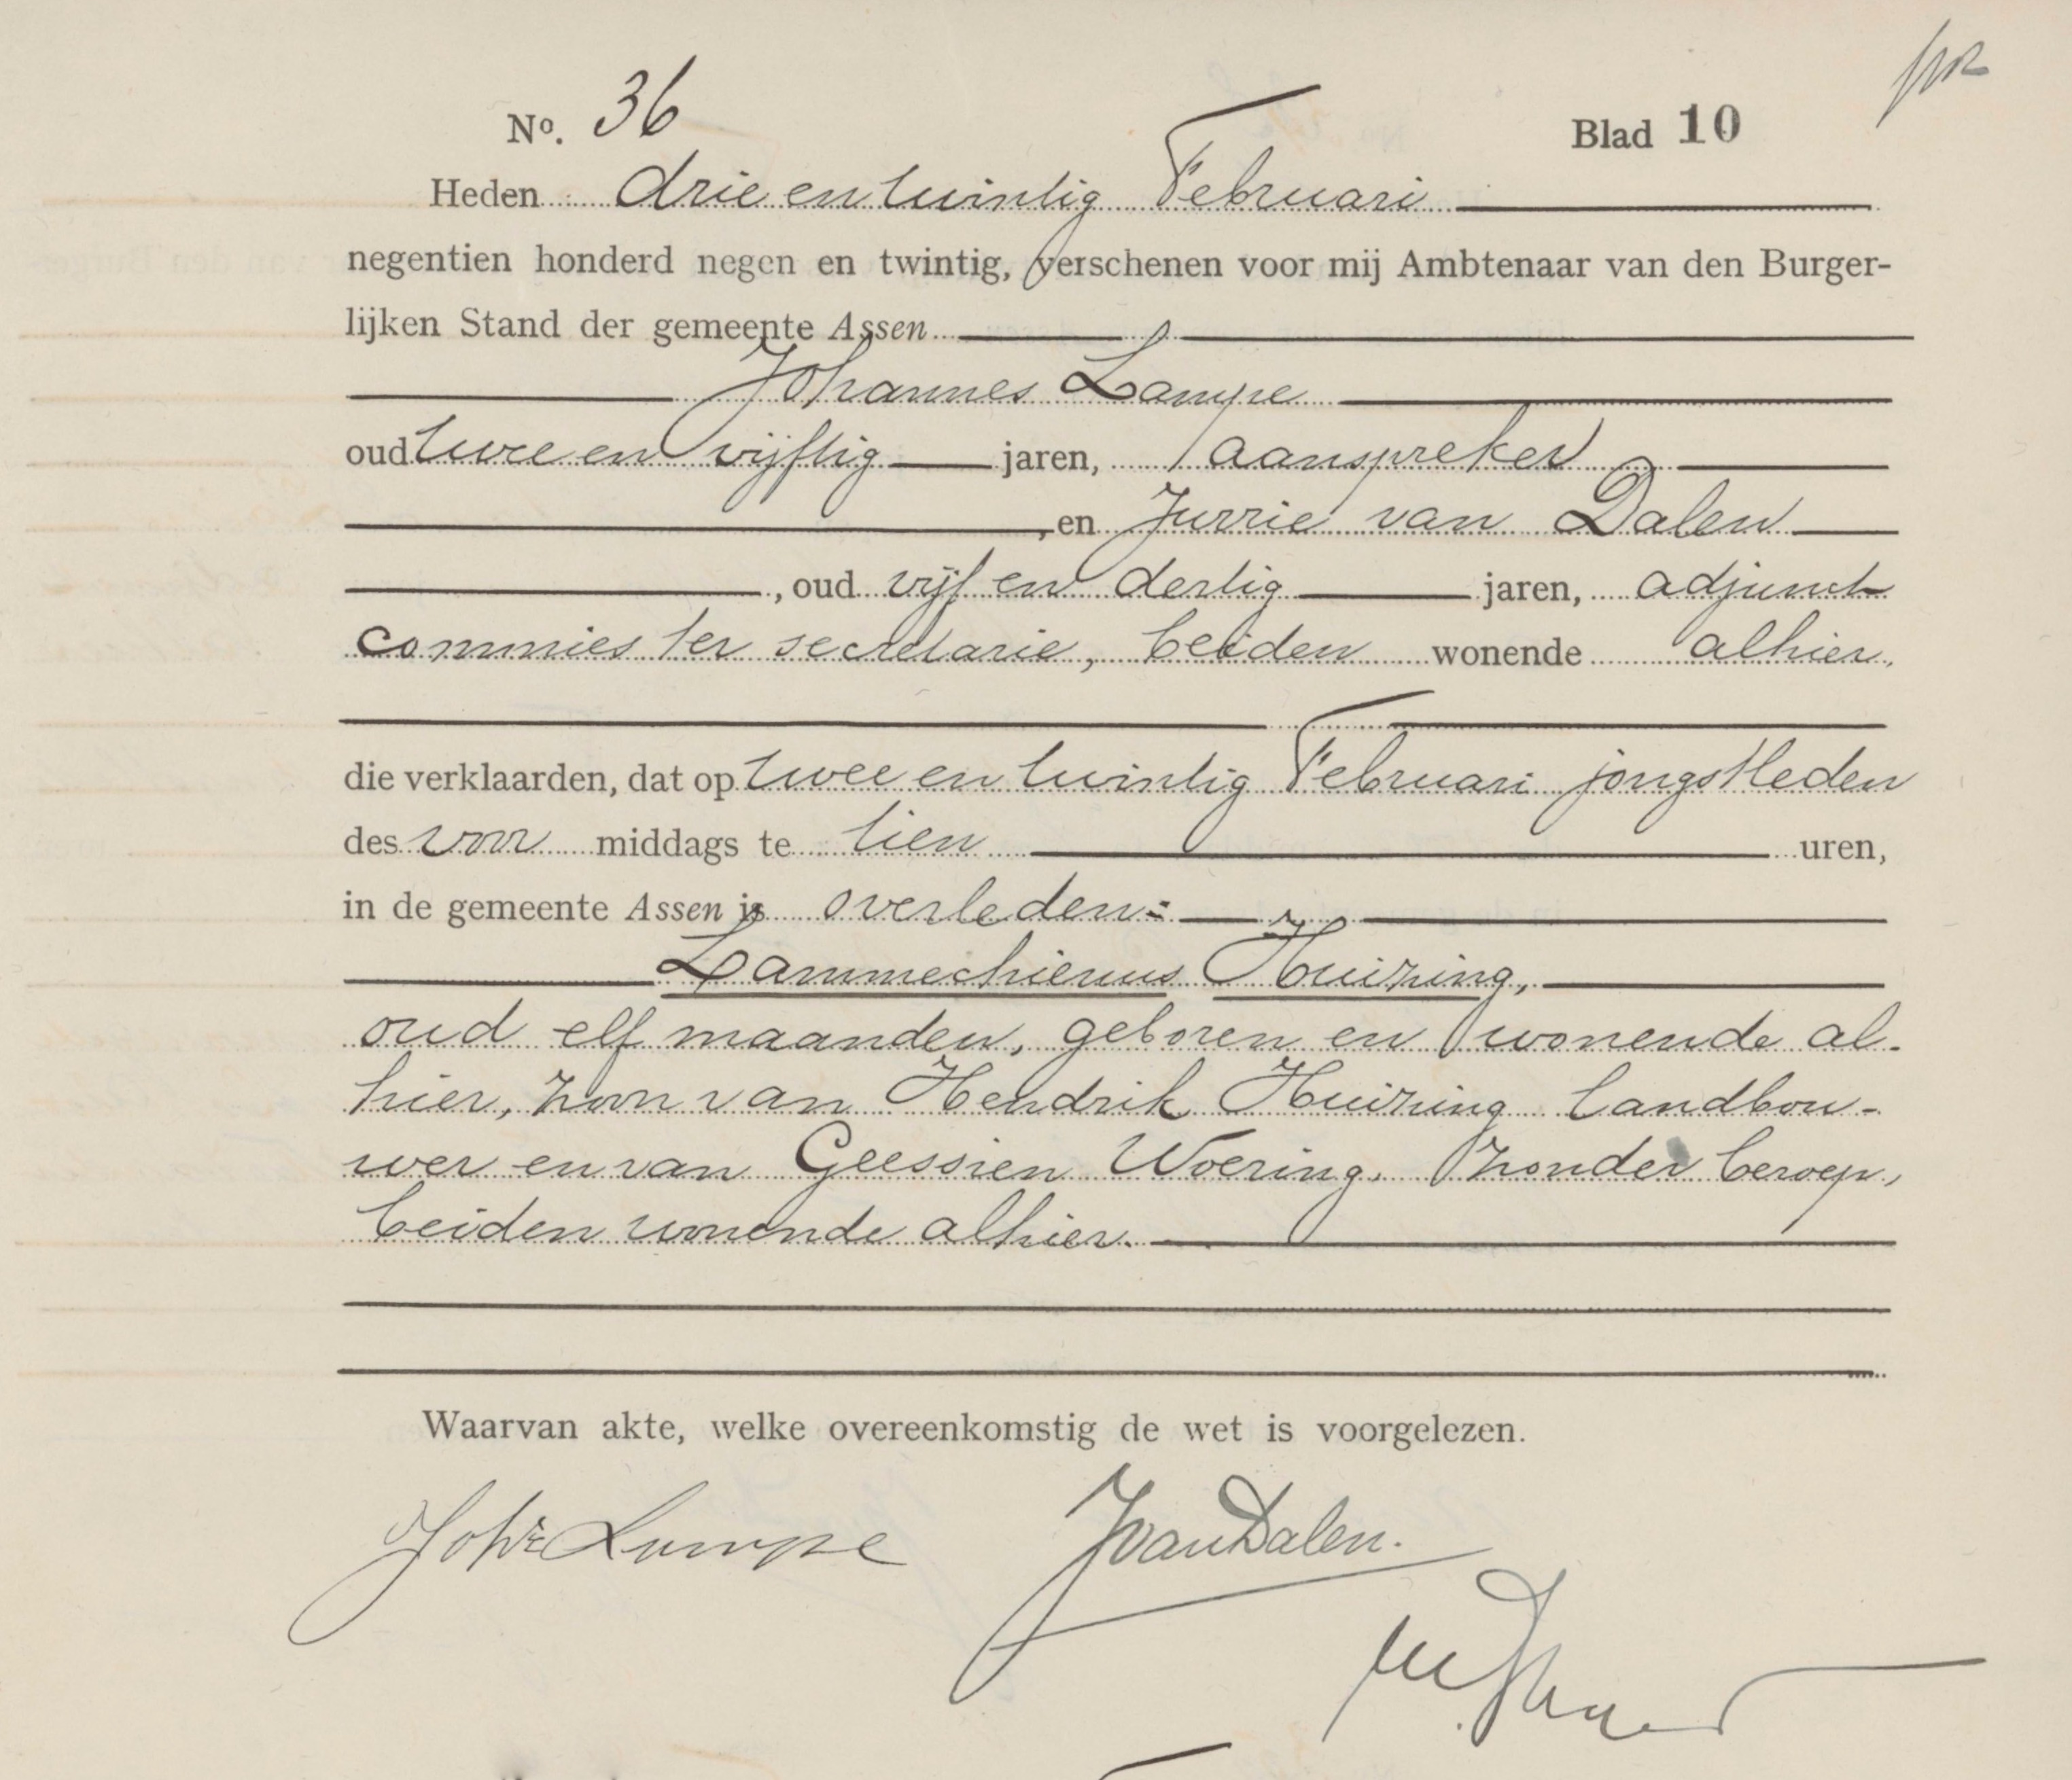 No. 36
Blad 10
Heden drie en twintig Februari
negentien honderd negen en twintig, verschenen voor mij Ambtenaar van den Burger-
lijken Stand der gemeente Assen
Johannes Lampe
oud twee en vijftig jaren, aanspreker
, en Jurrie van Dalen
, oud vijf en dertig jaren, adjunct
commies ter secretarie, beiden wonende alhier.
die verklaarden, dat op twee en twintig Februari jongstleden
des voor middags te tien uren,
in de gemeente Assen is overleden:
Lammechienus Huizing,
oud elf maanden, geboren en wonende al-
hier, zoon van Hendrik Huizing landbou-
wer en van Geessien Woering, zonder beroep,
beiden wonende alhier.
Waarvan akte, welke overeenkomstig de wet is voorgelezen.
Johs Lampe JvanDalen.